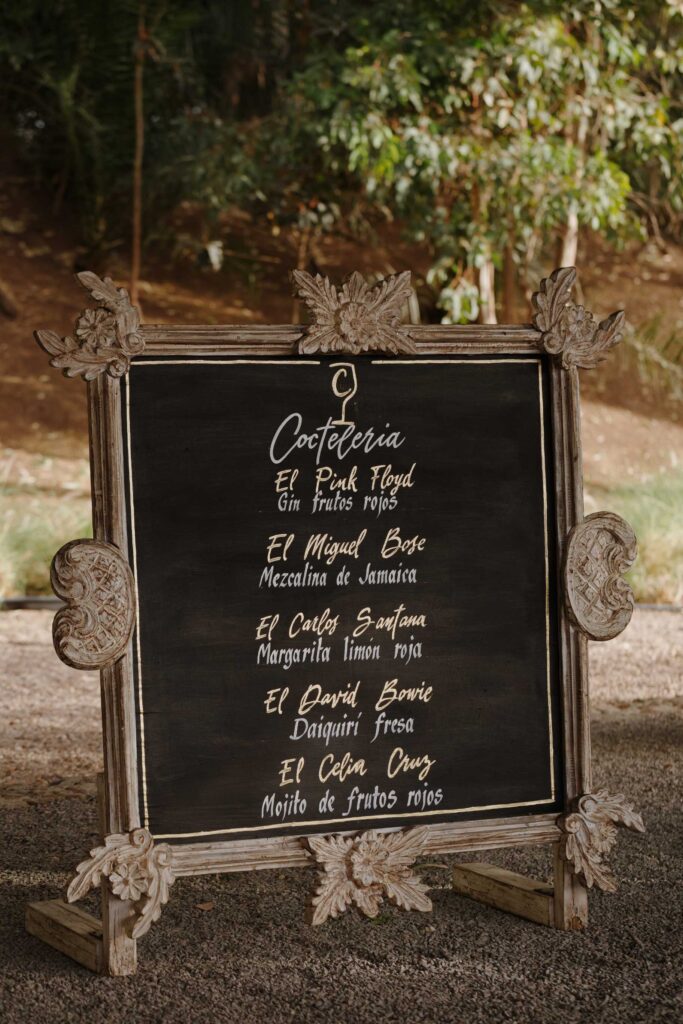 C
Coctelería
El Pink Floyd
Gin frutos rojos
El Miguel Bose
Mezcalina de Jamaica
El Carlos Santana
Margarita limón roja
El David Bowie
Daiquirí fresa
El Celia Cruz
Mojito de frutos rojos